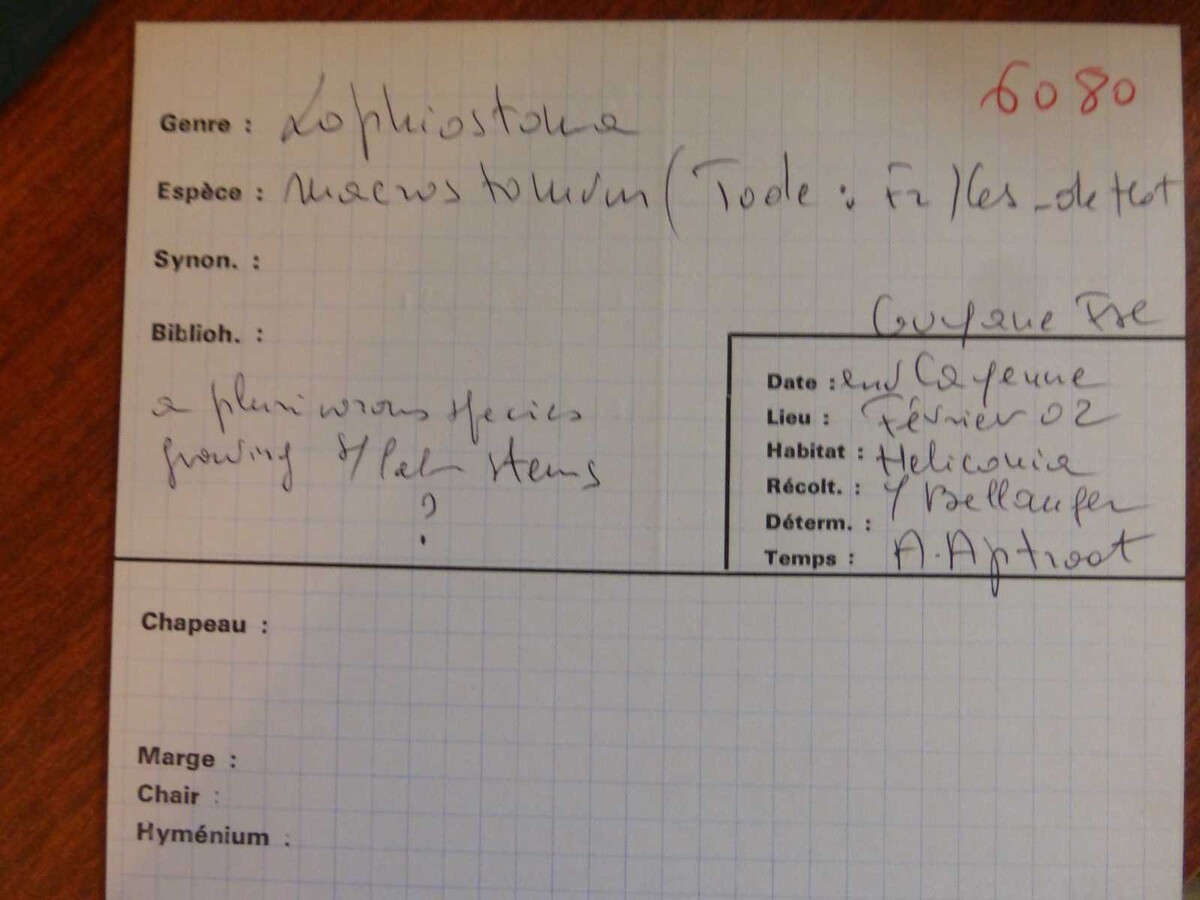 6080
Genre : Lophiostoma
Espèce : macrostomum (Tode : Fr) Ces_de Not
Synon. :
Biblioh. :
a plurivorous species
growing s/ Palm stems
?
Guyane Fse
Date : env Cayenne
Lieu : Février 02
Habitat : Heliconia
Récolt. : Y Bellanger
Déterm. :
Temps : A. Aptroot
Chapeau :
Marge :
Chair :
Hyménium :